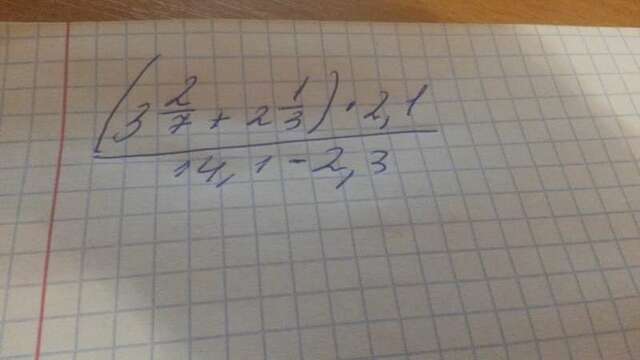 (3 2/7 + 2 1/3) · 2,1
14,1 - 2,3